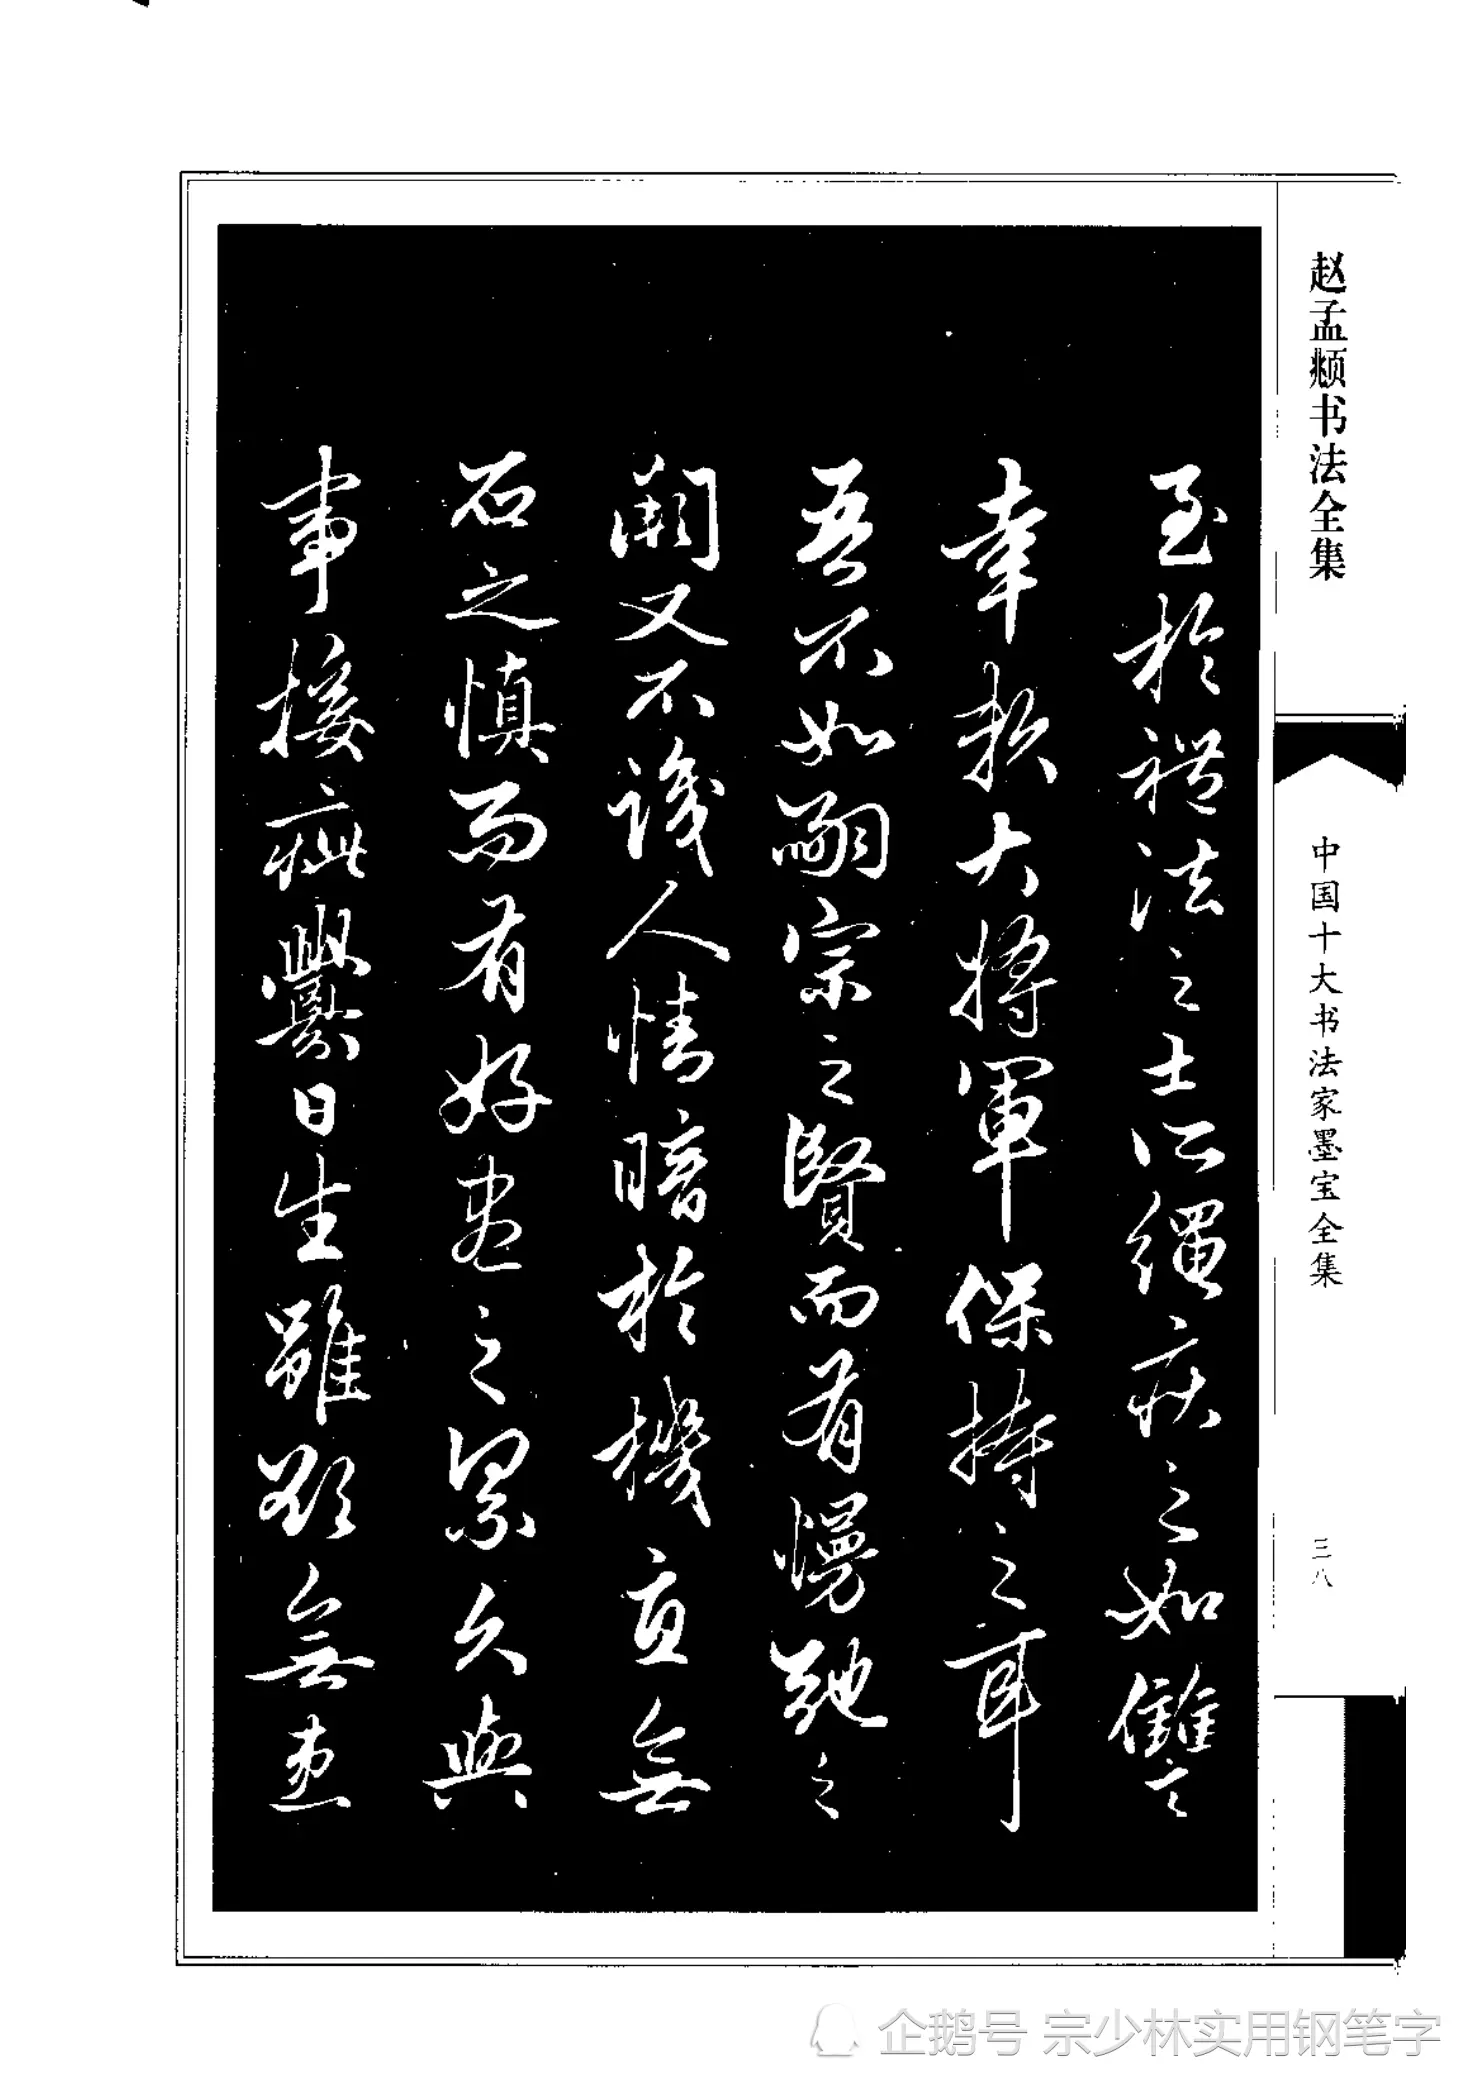 赵孟𫖯书法全集
中国十大书法家墨宝全集
三八
至於禮法之士所繩疾之如讎之
幸賴大將軍保持之耳
吾不如嗣宗之賢而有慢弛之
闕又不識人情暗於機宜無
石之慎而有好盡之累久與
事接疵釁日生雖欲無患
企鹅号 宗少林实用钢笔字